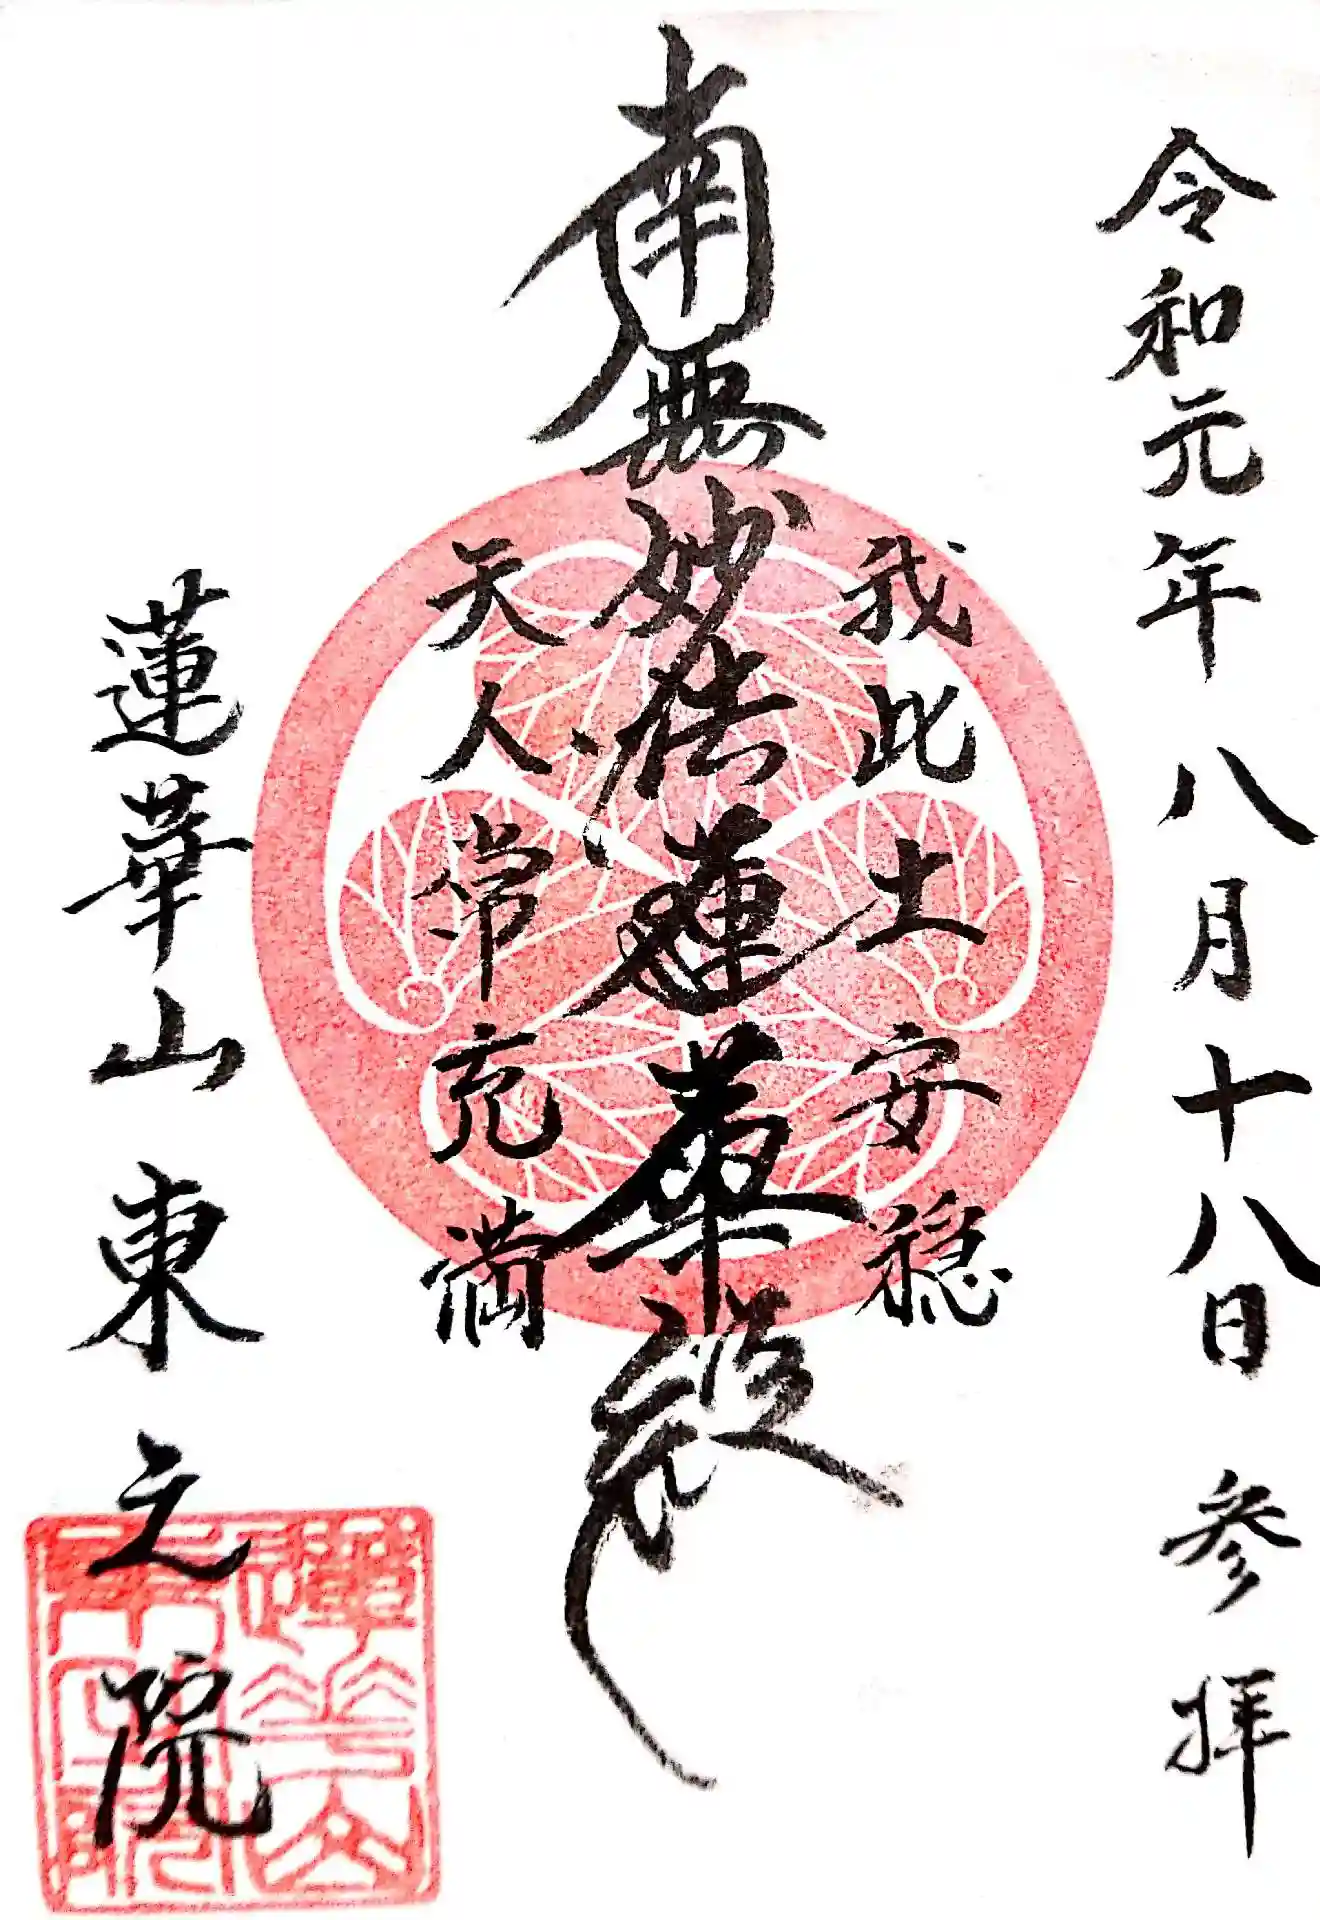 令和元年八月十八日 参拝
我此土安穏
南無妙法蓮華経
天人常充満
蓮華山東之院